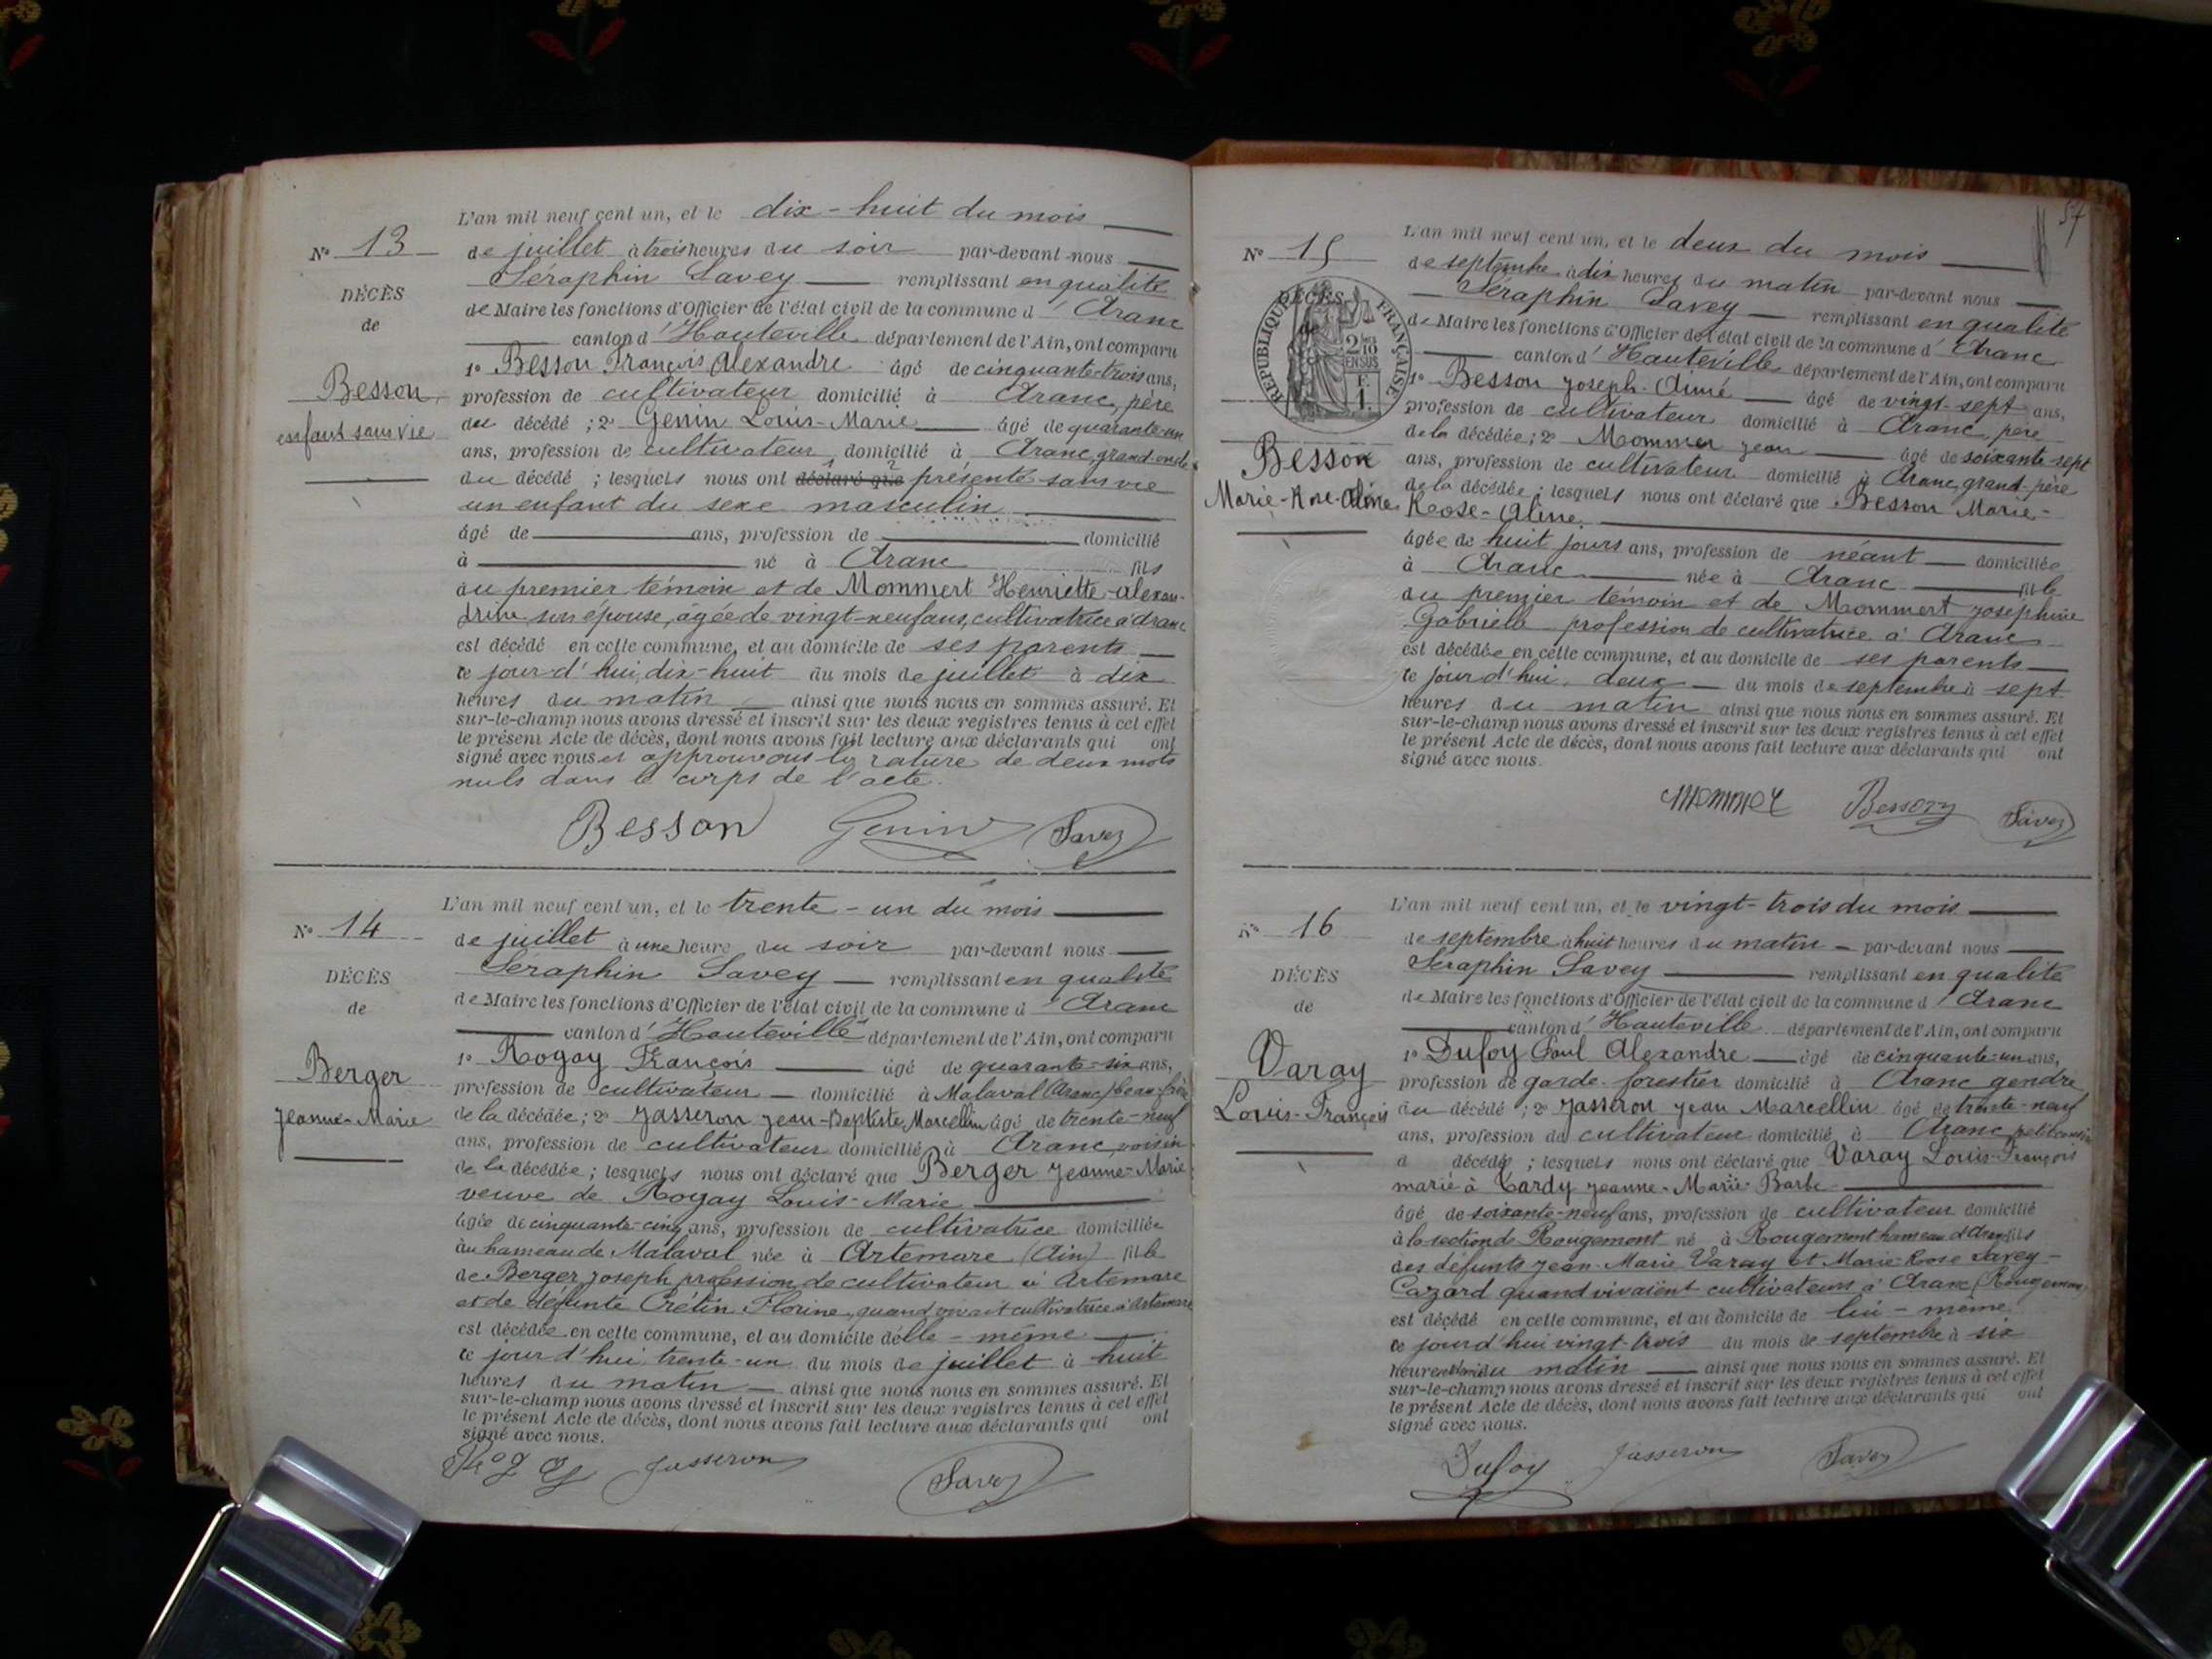 N° 13
DÉCÈS
de
Besson
enfant sans vie
L'an mil neuf cent un, et le dix-huit du mois
de juillet à trois heures du soir par-devant nous
Séraphin Savey remplissant en qualité
de Maire les fonctions d'Officier de l'état civil de la commune d'Aranc
canton d'Hauteville département de l'Ain, ont comparu
1° Besson François Alexandre âgé de cinquante-trois ans,
profession de cultivateur domicilié à Aranc, père
du décédé ; 2° Genin Louis-Marie âgé de quarante-un
ans, profession de cultivateur domicilié à Aranc, grand-oncle
du décédé ; lesquels nous ont déclaré que présenté sans vie
un enfant du sexe masculin
âgé de ans, profession de domicilié
à né à Aranc fils
du premier témoin et de Mommert Henriette-alexan-
drine son épouse, âgée de vingt-neuf ans, cultivatrice à Aranc
est décédé en cette commune, et au domicile de ses parents
ce jour-d'hui, dix-huit du mois de juillet à dix
heures du matin ainsi que nous nous en sommes assuré. Et
sur-le-champ nous avons dressé et inscrit sur les deux registres tenus à cet effet
le présent Acte de décès, dont nous avons fait lecture aux déclarants qui ont
signé avec nous et approuvons la rature de deux mots
nuls dans le corps de l'acte.
Besson Genin Savey
N° 14
DÉCÈS
de
Berger
Jeanne-Marie
L'an mil neuf cent un, et le trente-un du mois
de juillet à une heure du soir par-devant nous
Séraphin Savey remplissant en qualité
de Maire les fonctions d'Officier de l'état civil de la commune d'Aranc
canton d'Hauteville département de l'Ain, ont comparu
1° Rogay François âgé de quarante-six ans,
profession de cultivateur domicilié à Malaval (Aranc) beau-frère
de la décédée ; 2° Jasseron Jean-Baptiste Marcellin âgé de trente-neuf
ans, profession de cultivateur domicilié à Aranc, voisin
de la décédée ; lesquels nous ont déclaré que Berger Jeanne-Marie
veuve de Rogay Louis-Marie
âgée de cinquante-cinq ans, profession de cultivatrice domiciliée
au hameau de Malaval née à Artemare (Ain) fille
de Berger Joseph profession de cultivateur à Artemare
et de défunte Crétin Florine, quand vivait cultivatrice à Artemare
est décédée en cette commune, et au domicile d'elle-même
ce jour d'hui trente-un du mois de juillet à huit
heures du matin ainsi que nous nous en sommes assuré. Et
sur-le-champ nous avons dressé et inscrit sur les deux registres tenus à cet effet
le présent Acte de décès, dont nous avons fait lecture aux déclarants qui ont
signé avec nous.
Jasseron Savey
57
N° 15
DÉCÈS
de
RÉPUBLIQUE FRANÇAISE
2/10 EN SUS
F. 1.
Besson
Marie-Rose-Aline
L'an mil neuf cent un, et le deux du mois
de septembre à dix heures du matin par-devant nous
Séraphin Savey remplissant en qualité
de Maire les fonctions d'Officier de l'état civil de la commune d'Aranc
canton d'Hauteville département de l'Ain, ont comparu
1° Besson Joseph-Aimé âgé de vingt-sept ans,
profession de cultivateur domicilié à Aranc, père
de la décédée ; 2° Mommer Jean âgé de soixante-sept
ans, profession de cultivateur domicilié à Aranc, grand-père
de la décédée ; lesquels nous ont déclaré que Besson Marie-
Rose-Aline
âgée de huit jours ans, profession de néant domiciliée
à Aranc née à Aranc fille
du premier témoin et de Mommert Josephine
Gabrielle profession de cultivatrice à Aranc
est décédée en cette commune, et au domicile de ses parents
ce jour d'hui, deux du mois de septembre à sept
heures du matin ainsi que nous nous en sommes assuré. Et
sur-le-champ nous avons dressé et inscrit sur les deux registres tenus à cet effet
le présent Acte de décès, dont nous avons fait lecture aux déclarants qui ont
signé avec nous.
Mommer Besson Savey
N° 16
DÉCÈS
de
Varay
Louis-François
L'an mil neuf cent un, et le vingt-trois du mois
de septembre à huit heures du matin par-devant nous
Séraphin Savey remplissant en qualité
de Maire les fonctions d'Officier de l'état civil de la commune d'Aranc
canton d'Hauteville département de l'Ain, ont comparu
1° Dufoy Paul Alexandre âgé de cinquante-un ans,
profession de garde-forestier domicilié à Aranc gendre
du décédé ; 2° Jasseron Jean Marcellin âgé de trente-neuf
ans, profession de cultivateur domicilié à Aranc petit cousin
d décédé ; lesquels nous ont déclaré que Varay Louis-François
marié à Tardy Jeanne-Marie-Barbe
âgé de soixante-neuf ans, profession de cultivateur domicilié
à la section de Rougemont né à Rougemont hameau d'Aranc fils
des défunts Jean-Marie Varay et Marie-Rose Savey-
Cazard quand vivaient cultivateurs à Aranc (Rougemont)
est décédé en cette commune, et au domicile de lui-même
ce jourd'hui vingt-trois du mois de septembre à six
heures du matin ainsi que nous nous en sommes assuré. Et
sur-le-champ nous avons dressé et inscrit sur les deux registres tenus à cet effet
le présent Acte de décès, dont nous avons fait lecture aux déclarants qui ont
signé avec nous.
Dufoy Jasseron Savey